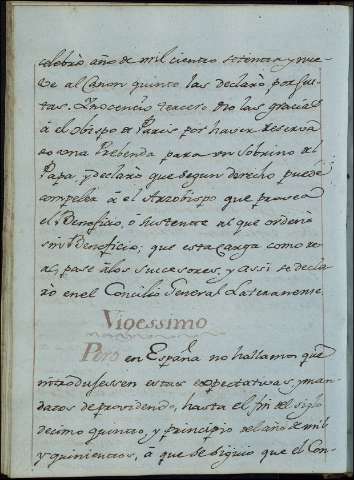 celebrò año de mil ciento setenta y nue-
ve al Canon quinto las declarò por Jus-
tas. Ynocencio tercero dio las gracias
à el obispo de Paris por haver reserva
do una Prebenda para un Sobrino del
Papa, y declarò que segun derecho puede
compeler à el Arzobispo que provea
el Beneficio, ò sustente al que ordenò
sin Beneficio; que esta carga como re-
al, pase álos successores, y assi se decla-
rò en el Concilio General Lateranense.
Vigessimo
Pero en España no hallamos que
introdujessen estas expectativas, y man-
datos de providendo, hasta el fin del siglo
decimo quinto, y principio del año de mil
y quinientos, à que se siguio que el Con-